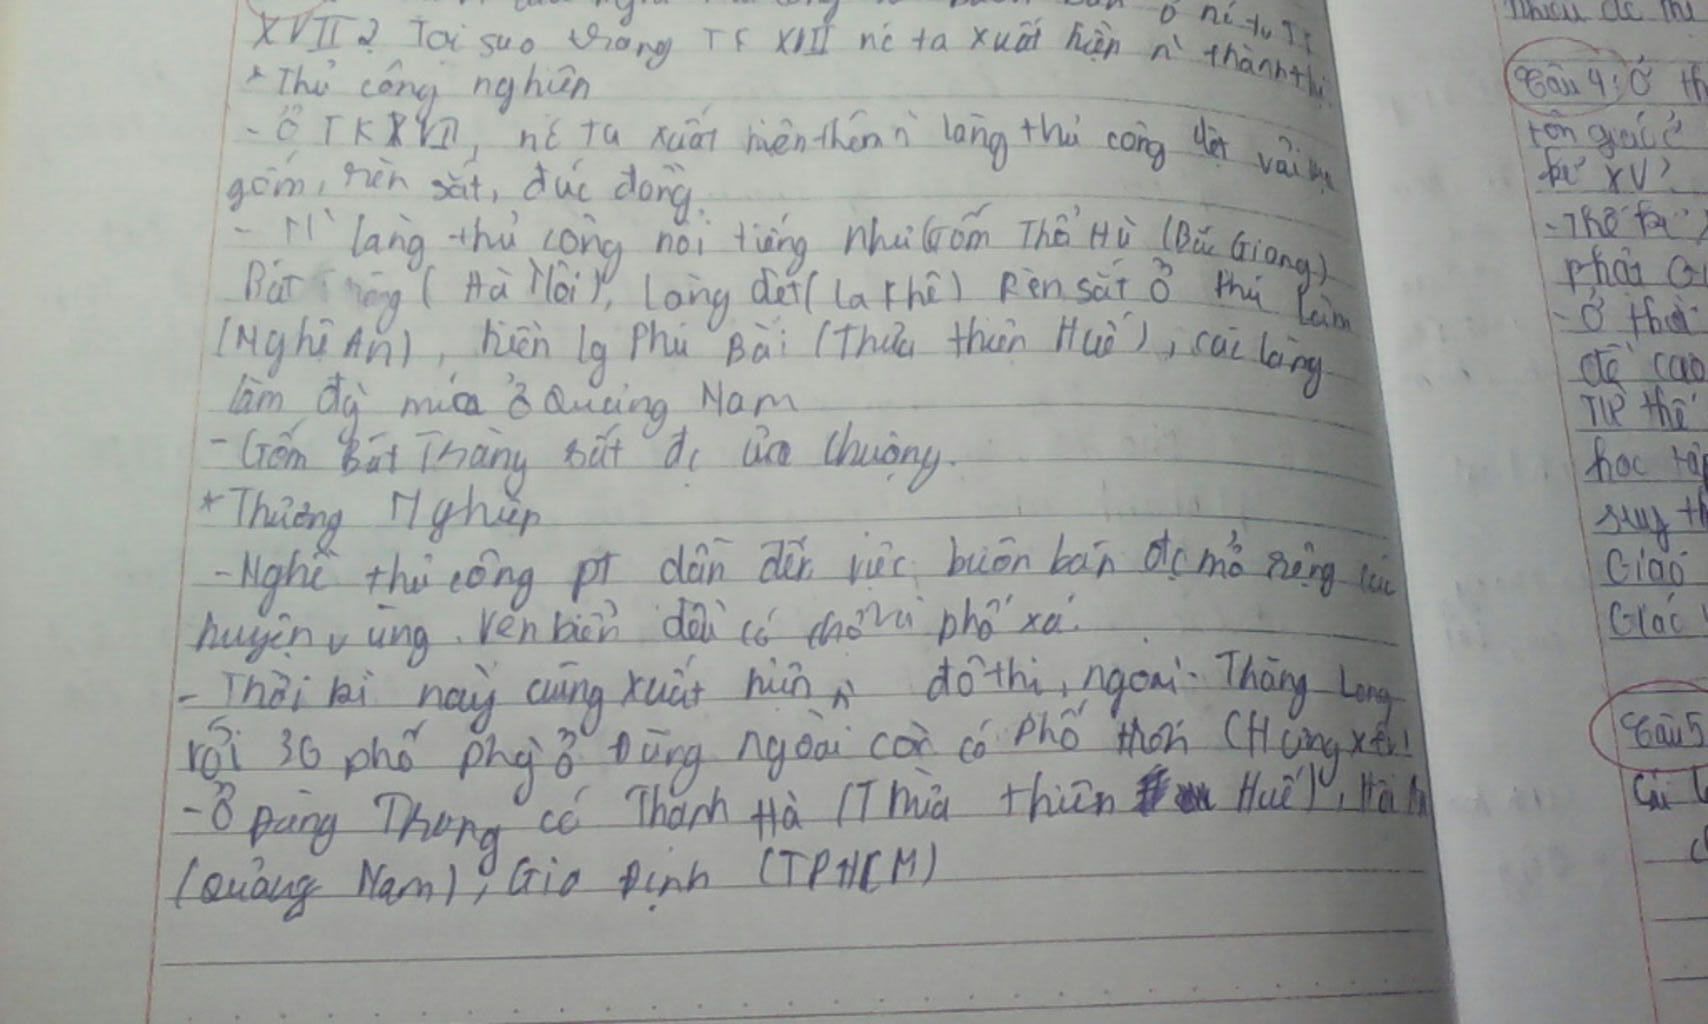 XVII? Tại sao trong TK XVII nc ta xuất hiện n` thành thị
* Thủ công nghiệp
- Ở TK XVII, nc ta xuất hiện thêm n` làng thủ công dệt vải
gốm, rèn sắt, đúc đồng.
- N` làng thủ công nổi tiếng như Gốm Thổ Hà (Bắc Giang)
Bát Tràng (Hà Nội), Làng dệt (La Khê) Rèn sắt ở
(Nghệ An), hiền lg Phú Bài (Thừa thiên Huế), các làng
làm đg mía ở Quảng Nam
- Gốm Bát Tràng rất đc ưa chuộng.
* Thương Nghiệp
- Nghề thủ công pt dẫn đến việc buôn bán đc mở rộng các
huyện, vùng ven biển đều có chợ và phố xá.
- Thời kì này cũng xuất hiện n` đô thị, ngoài Thăng Long
với 36 phố phg ở Đàng ngoài còn có Phố Hiến (Hưng Yên)
- Ở Đàng Trong có Thanh Hà (Thừa thiên Huế), Hội An
(Quảng Nam), Gia Định (TPHCM)
Câu 4: Ở th
tôn giáo ở
kỉ XV?
- Thế kỉ
phật G
- Ở thời
đề cao
Từ thế
học tập
suy th
Giáo
Giáo
Câu 5